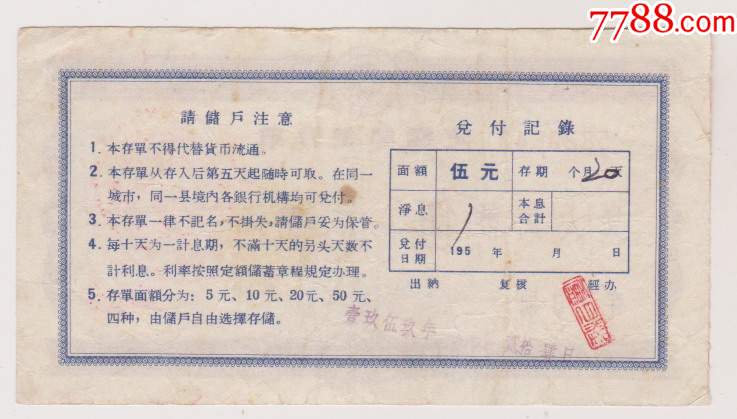 7788.com
請儲戶注意
1. 本存單不得代替貨币流通。
2. 本存單从存入后第五天起随時可取。在同一
城市，同一县境内各銀行机構均可兌付。
3. 本存單一律不記名，不掛失，請儲戶妥为保管。
4. 每十天为一計息期，不滿十天的另头天數不
計利息。利率按照定額儲蓄章程規定办理。
5. 存單面額分为：5元、10元、20元、50元、
四种，由儲戶自由选擇存儲。
兌付記錄
面額 伍元 存期 个月20天
淨息 1 本息合計
兌付日期 195 年 月 日
出納 复核 經办
壹玖伍玖年
貳拾肆日